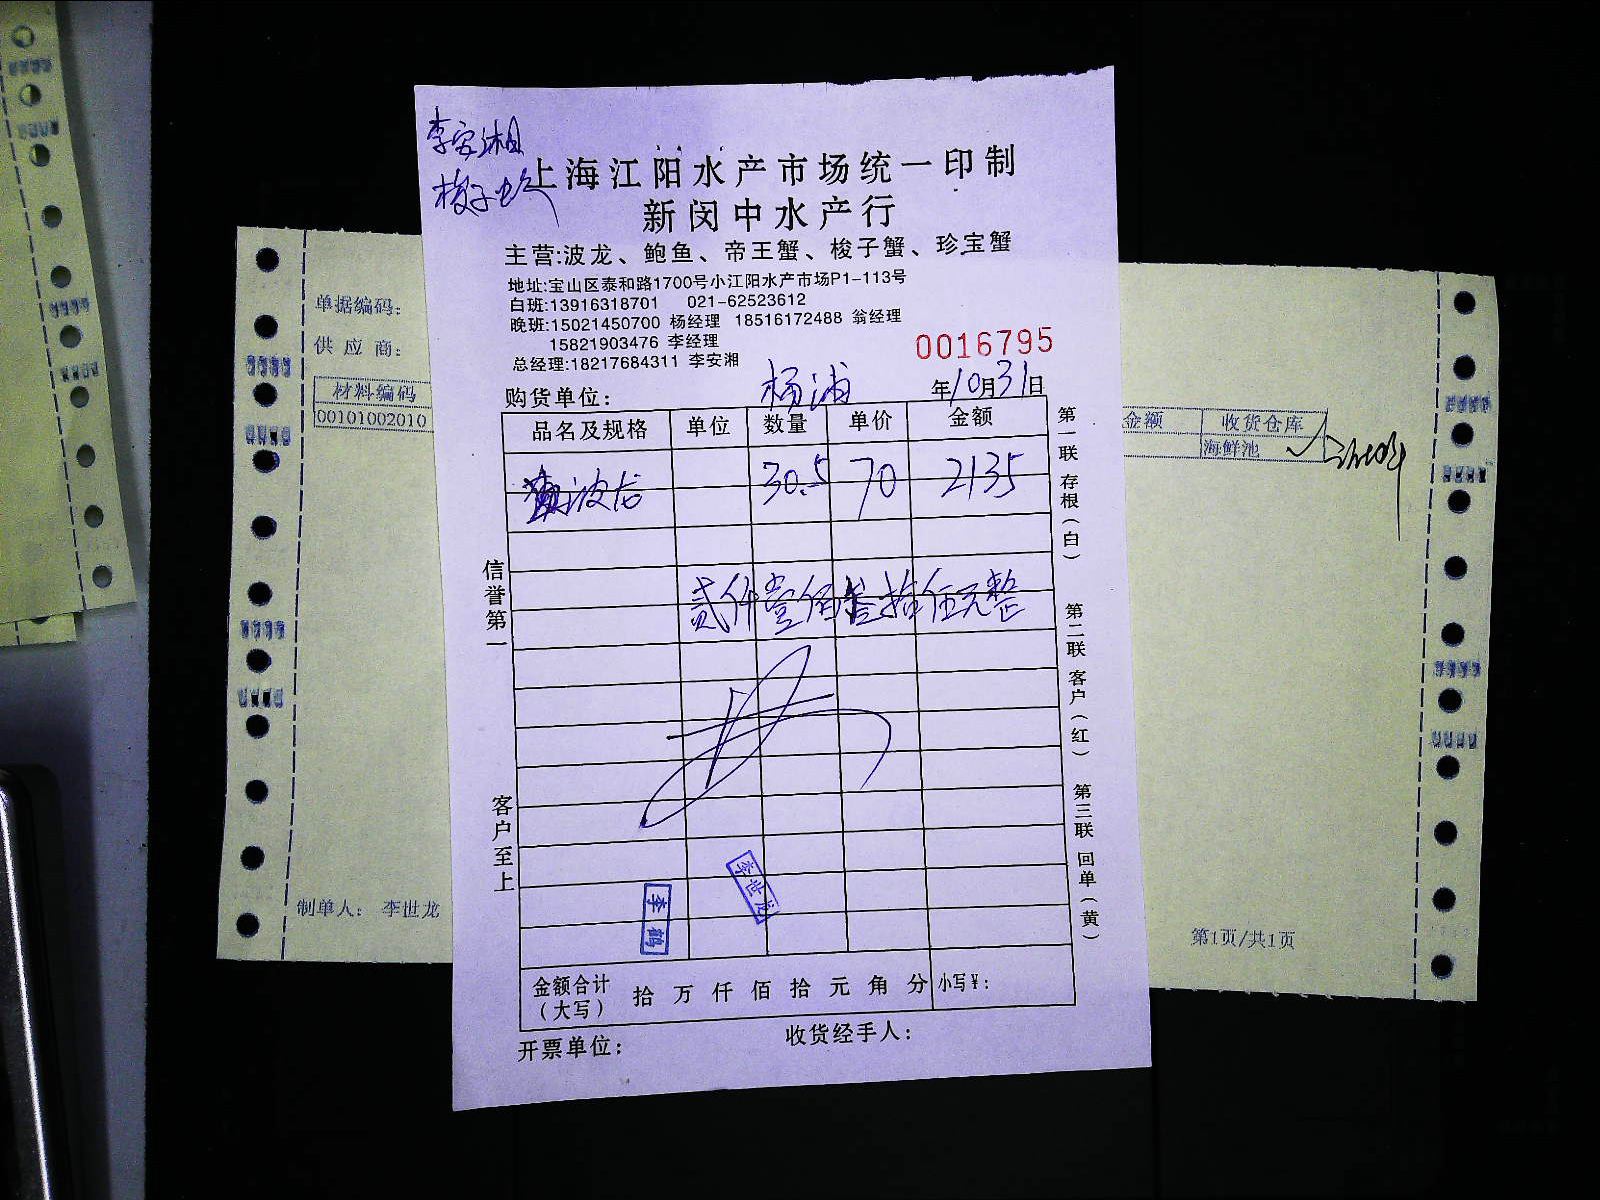 李安湘
梭子蟹
上海江阳水产市场统一印制
新闵中水产行
主营:波龙、鲍鱼、帝王蟹、梭子蟹、珍宝蟹
地址:宝山区泰和路1700号小江阳水产市场P1-113号
白班:13916318701 021-62523612
晚班:15021450700 杨经理 18516172488 翁经理
15821903476 李经理
总经理:18217684311 李安湘
0016795
购货单位: 杨浦 年10月31日
品名及规格 单位 数量 单价 金额
波龙 30.5 70 2135
贰仟壹佰叁拾伍元整
李世龙
李鹤
金额合计(大写) 拾 万 仟 佰 拾 元 角 分 小写¥:
开票单位: 收货经手人:
信誉第一
客户至上
第一联 存根(白)
第二联 客户(红)
第三联 回单(黄)
单据编码:
供应商:
材料编码
00101002010
制单人: 李世龙
金额 收货仓库
海鲜池
第1页/共1页